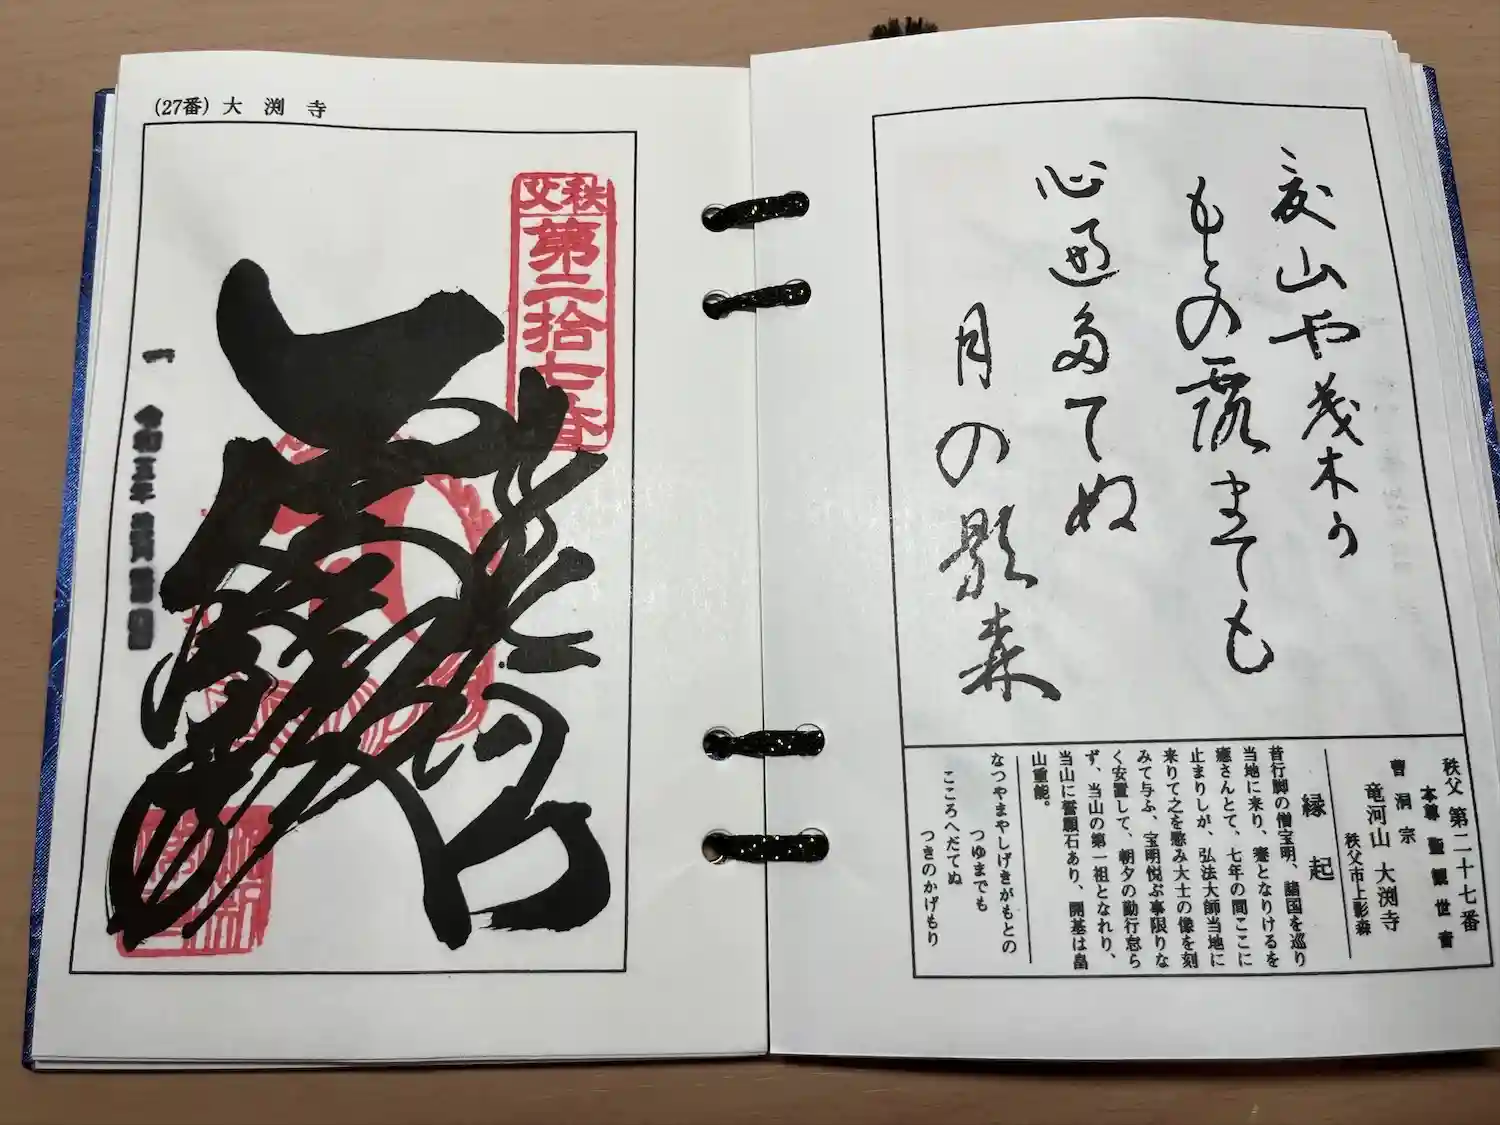 夏山や茂木う
もとの露まても
心遍多てぬ
月の影森
秩父 第二十七番
本尊 聖観世音
曹洞宗
竜河山 大渕寺
秩父市上影森
縁起
昔行脚の僧宝明、諸国を巡り
当地に来り、蹇となりけるを
癒さんとて、七年の間ここに
止まりしが、弘法大師当地に
来りて之を愍み大士の像を刻
みて与ふ、宝明悦ぶ事限りな
く安置して、朝夕の勤行怠ら
ず、当山の第一祖となれり、
当山に誓願石あり、開基は畠
山重能。
なつやまやしげきがもとの
つゆまでも
こころへだてぬ
つきのかげもり
(27番) 大渕寺
秩父
第二拾七番